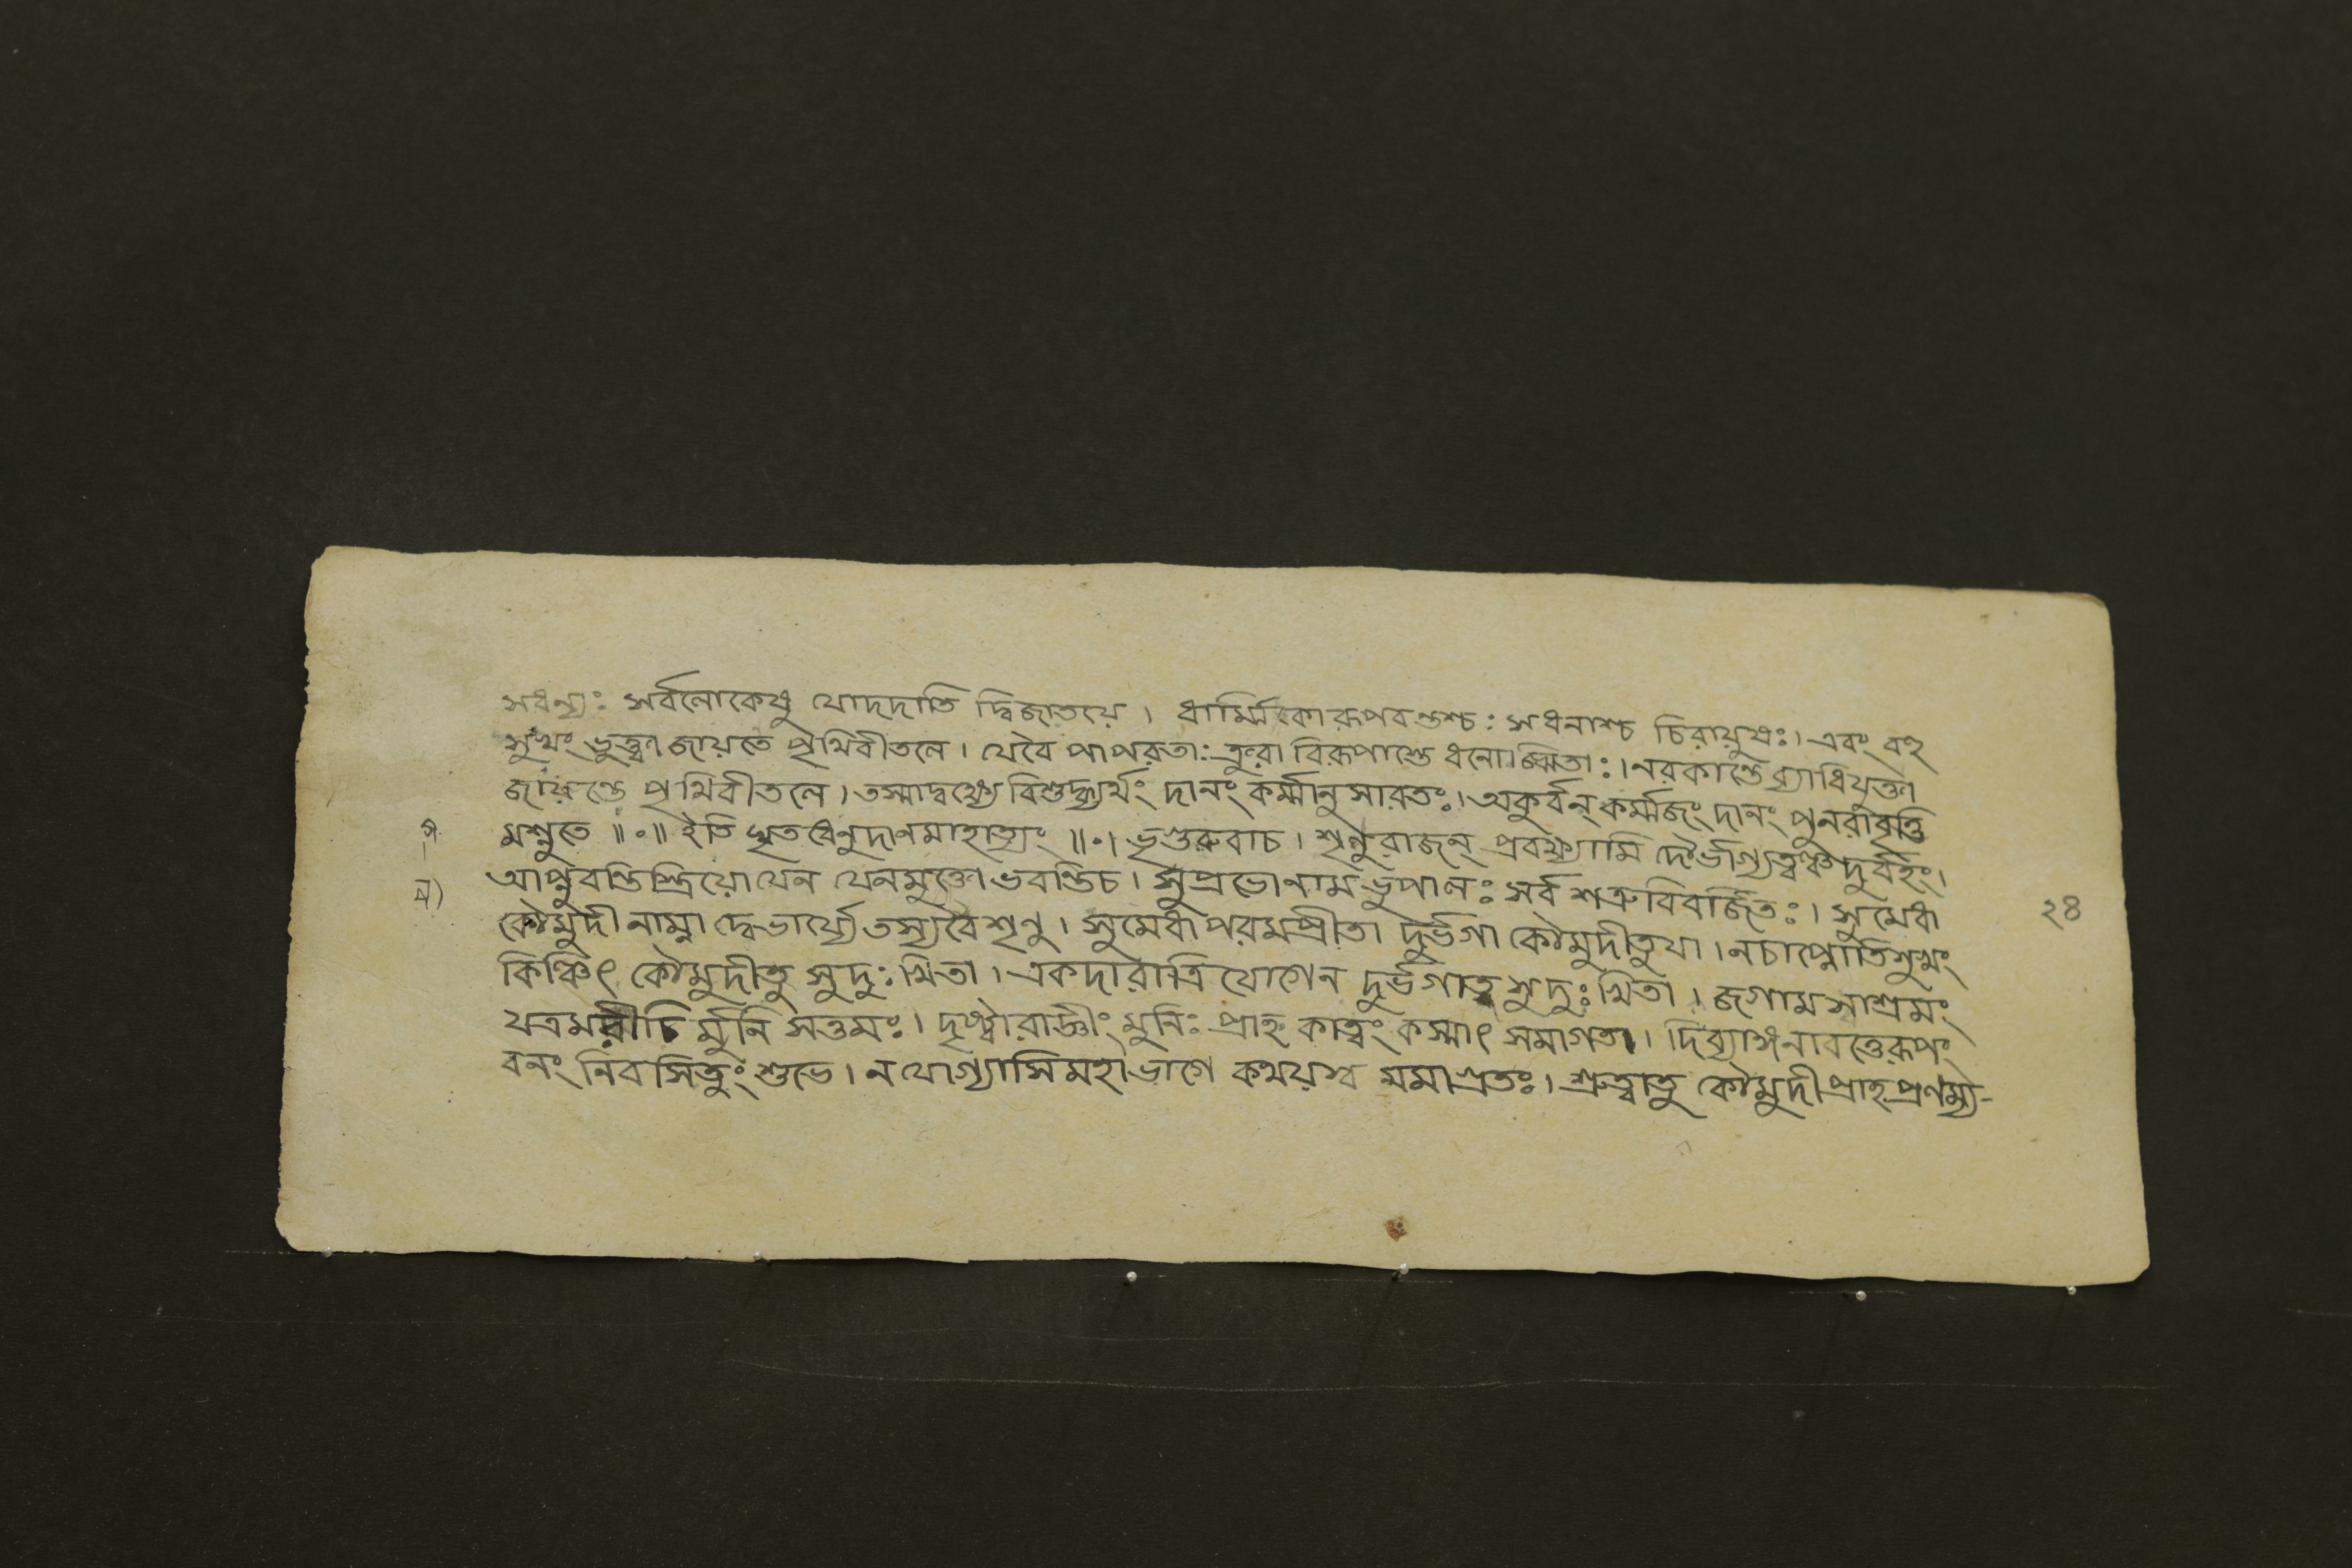 সধন্যঃ সর্বলোকেষু যোদদাতি দ্বিজাতয়ে। ধার্ম্মিকো রূপবন্তশ্চঃ সধনাশ্চ চিরায়ুষঃ। এবং বহু
সুখং ভুক্ত্বা জায়তে পৃথিবীতলে। যেবৈ পাপরতাঃ ক্রুরা বিরূপাস্তে ধনোজ্ঝিতাঃ। নরকান্তে ব্যাধিযুক্তা
জায়ন্তে পৃথিবীতলে। তস্মাদ্বক্ষ্যে বিশুদ্ধ্যর্থং দানং কর্ম্মানুসারতঃ। অকুর্বন্ কর্ম্মজং দানং পুনরাবৃত্তি
মশ্নুতে॥০॥ ইতি ঘৃতধেনুদানমাহাত্ম্যং॥০। ভৃগুরুবাচ। শৃণুরাজন্ প্রবক্ষ্যামি দৌর্ভাগ্যত্বঞ্চদুর্বহং।
আপ্নুবন্তিস্ত্রিয়োযেন যেনমুক্তো ভবন্তিচ। সুপ্রভোনামভূপালঃ সর্বশত্রুবিবর্জিতঃ। সুমেধা
কৌমুদীনাম্না দ্বেভার্য্যেতস্যবৈশৃণু। সুমেধাপরমপ্রীতা দুর্ভগা কৌমুদীতুযা। নচাপ্নোতিসুখং
কিঞ্চিৎ কৌমুদীতু সুদুঃখিতা। একদারাত্রিযোগেন দুর্ভগাতু সুদুঃখিতা। জগামসাশ্রমং
যত্রমরীচির্মুনিসত্তমঃ। দৃষ্ট্বারাজ্ঞীং মুনিঃ প্রাহ কাত্বং কস্মাৎ সমাগতা। দিব্যাঙ্গনাবত্তেরূপং
বনং নিবসিতুং শুভে। নযোগ্যাসিমহাভাগে কথয়স্ব মমাগ্রতঃ। শ্রুত্বাতু কৌমুদীপ্রাহপ্রণম্য-
২৪